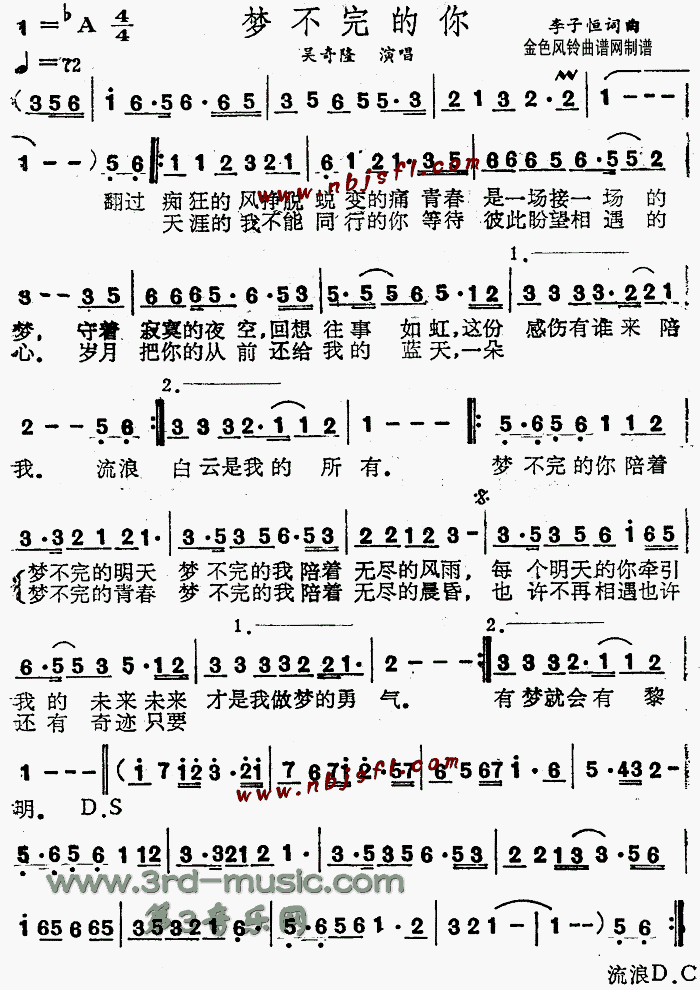 1=♭A 4/4 梦不完的你 李子恒词曲
♩=72 吴奇隆 演唱 金色风铃曲谱网制谱
(356 | i 6·56·65 | 3565·3 | 2132·2 | 1---
1--) 56 |: 112321 | 6121·35 | 666656·552
www.nbjsfl.com
翻过 痴狂的风挣脱 蜕变的痛青春 是一场接一场的
天涯的我不能 同行的你等待 彼此盼望相遇的
1.
3--35 | 6665·6·53 | 5·5565·12 | 3333·221
梦, 守着 寂寞的夜空,回想 往事 如虹,这份 感伤有谁来陪
心。岁月 把你的从前还给 我的 蓝天,一朵
2.
2--56 :| 3332·112 | 1--- |: 5·656112
我。 流浪 白云是我的所有。 梦不完的你陪着
3·32121· | 3·35356·53 | 2212123- | 3·5356i65
梦不完的明天 梦不完的我陪着 无尽的风雨, 每个明天的你牵引
梦不完的青春 梦不完的我陪着 无尽的晨昏, 也许不再相遇也许
1. 2.
6·5535·12 | 33333221· | 2--- :| 3332·112
我的未来未来 才是我做梦的勇气。 有梦就会有黎
还有奇迹只要
1--- || (i7i23·2i | 767i2·57 | 6·567i·6 | 5·432-
www.nbjsfl.com
明。 D.S
5·656112 | 3·32121· | 3·35356·53 | 221233·56
www.3rd-music.com
i6566565 | 35353216· | 5·6561·6 | 321- | 1--) 56 :|
第3音乐网
流浪D.C